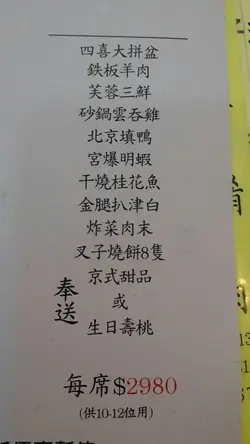 四喜大拼盆
鉄板羊肉
芙蓉三鮮
砂鍋雲吞雞
北京填鴨
宮爆明蝦
干燒桂花魚
金腿扒津白
炸菜肉末
叉子燒餅8隻
奉送
京式甜品
或
生日壽桃
每席$2980
(供10-12位用)